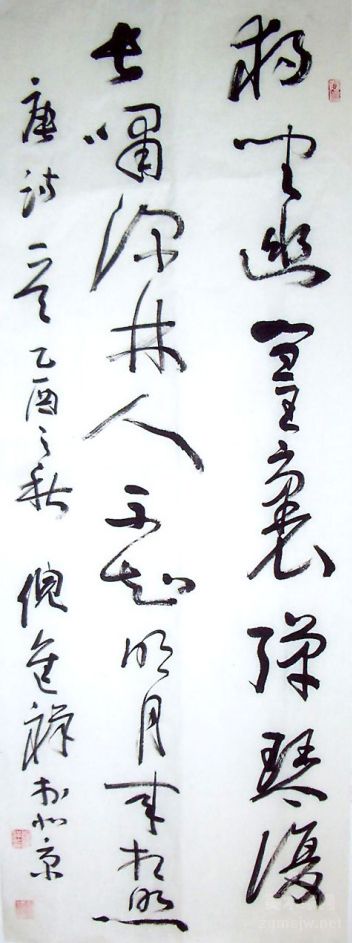 独坐幽篁裏弹琴復
长啸深林人不知明月来相照
唐诗一首乙酉之秋倪进祥书于北京